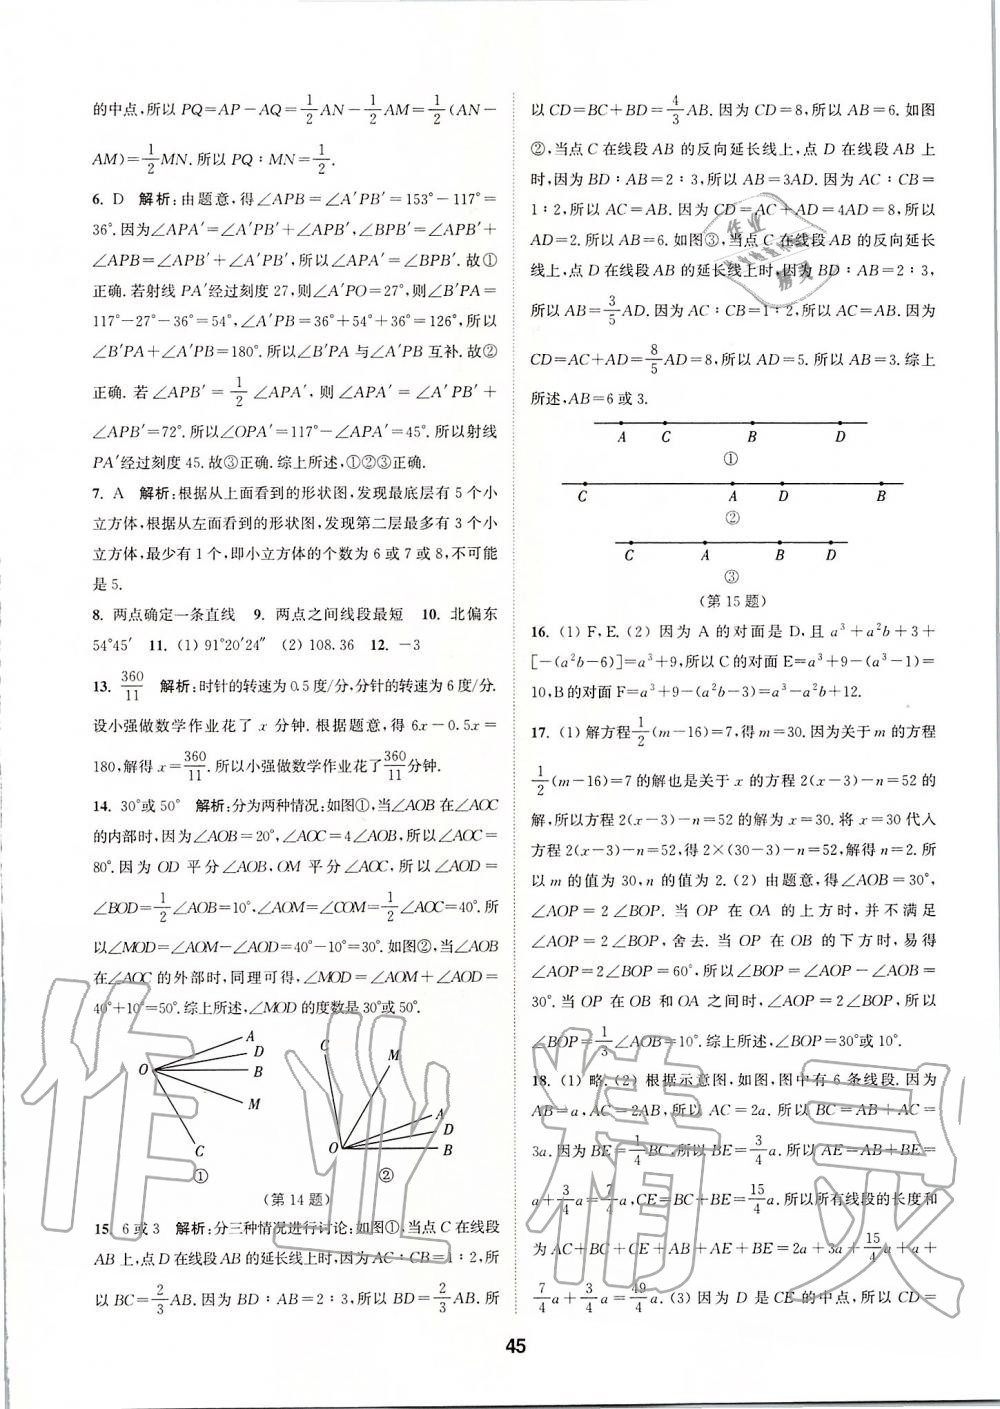 的中点,所以 PQ=AP-AQ=1/2AN-1/2AM=1/2(AN-
AM)=1/2MN.所以 PQ∶MN=1/2.
6. D 解析:由题意,得∠APB=∠A′PB′=153°-117°=
36°.因为∠APA′=∠A′PB′+∠APB′,∠BPB′=∠APB′+
∠APB=∠APB′+∠A′PB′,所以∠APA′=∠BPB′.故①
正确.若射线 PA′经过刻度 27,则∠A′PO=27°,则∠B′PA=
117°-27°-36°=54°,∠A′PB=36°+54°+36°=126°,所以
∠B′PA+∠A′PB=180°.所以∠B′PA 与∠A′PB 互补.故②
正确.若 ∠APB′=1/2∠APA′,则 ∠APA′=∠A′PB′+
∠APB′=72°.所以∠OPA′=117°-∠APA′=45°.所以射线
PA′经过刻度 45.故③正确.综上所述,①②③正确.
7. A 解析:根据从上面看到的形状图,发现最底层有 5 个小
立方体,根据从左面看到的形状图,发现第二层最多有 3 个小
立方体,最少有 1 个,即小立方体的个数为 6 或 7 或 8,不可能
是 5.
8. 两点确定一条直线 9. 两点之间线段最短 10. 北偏东
54°45′ 11. (1) 91°20′24″ (2) 108.36 12. -3
13. 360/11 解析:时针的转速为 0.5 度/分,分针的转速为 6 度/分.
设小强做数学作业花了 x 分钟.根据题意,得 6x-0.5x=
180,解得 x=360/11.所以小强做数学作业花了360/11分钟.
14. 30°或 50° 解析:分为两种情况:如图①,当∠AOB 在∠AOC
的内部时,因为∠AOB=20°,∠AOC=4∠AOB,所以∠AOC=
80°.因为 OD 平分∠AOB,OM 平分∠AOC,所以∠AOD=
∠BOD=1/2∠AOB=10°,∠AOM=∠COM=1/2∠AOC=40°.所
以∠MOD=∠AOM-∠AOD=40°-10°=30°.如图②,当∠AOB
在∠AOC 的外部时,同理可得,∠MOD=∠AOM+∠AOD=
40°+10°=50°.综上所述,∠MOD 的度数是 30°或 50°.
A
D
O
B
M
C
①
C
M
A
D
O
B
②
(第 14 题)
15. 6 或 3 解析:分三种情况进行讨论:如图①,当点 C 在线段
AB 上,点 D 在线段 AB 的延长线上时,因为 AC∶CB=1∶2,所
以 BC=2/3AB.因为 BD∶AB=2∶3,所以 BD=2/3AB.所
以 CD=BC+BD=4/3AB.因为 CD=8,所以 AB=6.如图
②,当点 C 在线段 AB 的反向延长线上,点 D 在线段 AB 上
时,因为 BD∶AB=2∶3,所以 AB=3AD.因为 AC∶CB=
1∶2,所以 AC=AB.因为 CD=AC+AD=4AD=8,所以
AD=2.所以 AB=6.如图③,当点 C 在线段 AB 的反向延长
线上,点 D 在线段 AB 的延长线上时,因为 BD∶AB=2∶3,
所以 AB=3/5AD.因为 AC∶CB=1∶2,所以 AC=AB.因为
CD=AC+AD=8/5AD=8,所以 AD=5.所以 AB=3.综上
所述,AB=6 或 3.
A C B D
①
C A D B
②
C A B D
③
(第 15 题)
16. (1) F,E. (2) 因为 A 的对面是 D,且 a³+a²b+3+
[-(a²b-6)]=a³+9,所以 C 的对面 E=a³+9-(a³-1)=
10,B 的对面 F=a³+9-(a²b-3)=a³-a²b+12.
17. (1) 解方程1/2(m-16)=7,得 m=30.因为关于 m 的方程
1/2(m-16)=7 的解也是关于 x 的方程 2(x-3)-n=52 的
解,所以方程 2(x-3)-n=52 的解为 x=30.将 x=30 代入
方程 2(x-3)-n=52,得 2×(30-3)-n=52,解得 n=2.所
以 m 的值为 30,n 的值为 2. (2) 由题意,得∠AOB=30°,
∠AOP=2∠BOP.当 OP 在 OA 的上方时,并不满足
∠AOP=2∠BOP,舍去.当 OP 在 OB 的下方时,易得
∠AOP=2∠BOP=60°,所以∠BOP=∠AOP-∠AOB=
30°.当 OP 在 OB 和 OA 之间时,∠AOP=2∠BOP,所以
∠BOP=1/3∠AOB=10°.综上所述,∠BOP=30°或 10°.
18. (1) 略. (2) 根据示意图,如图,图中有 6 条线段.因为
AB=a,AC=2AB,所以 AC=2a.所以 BC=AB+AC=
3a.因为 BE=1/4BC,所以 BE=3/4a.所以 AE=AB+BE=
a+3/4a=7/4a,CE=BC+BE=15/4a.所以所有线段的长度和
为 AC+BC+CE+AB+AE+BE=2a+3a+15/4a+a+
7/4a+3/4a=49/4a. (3) 因为 D 是 CE 的中点,所以 CD=
45
作业精灵